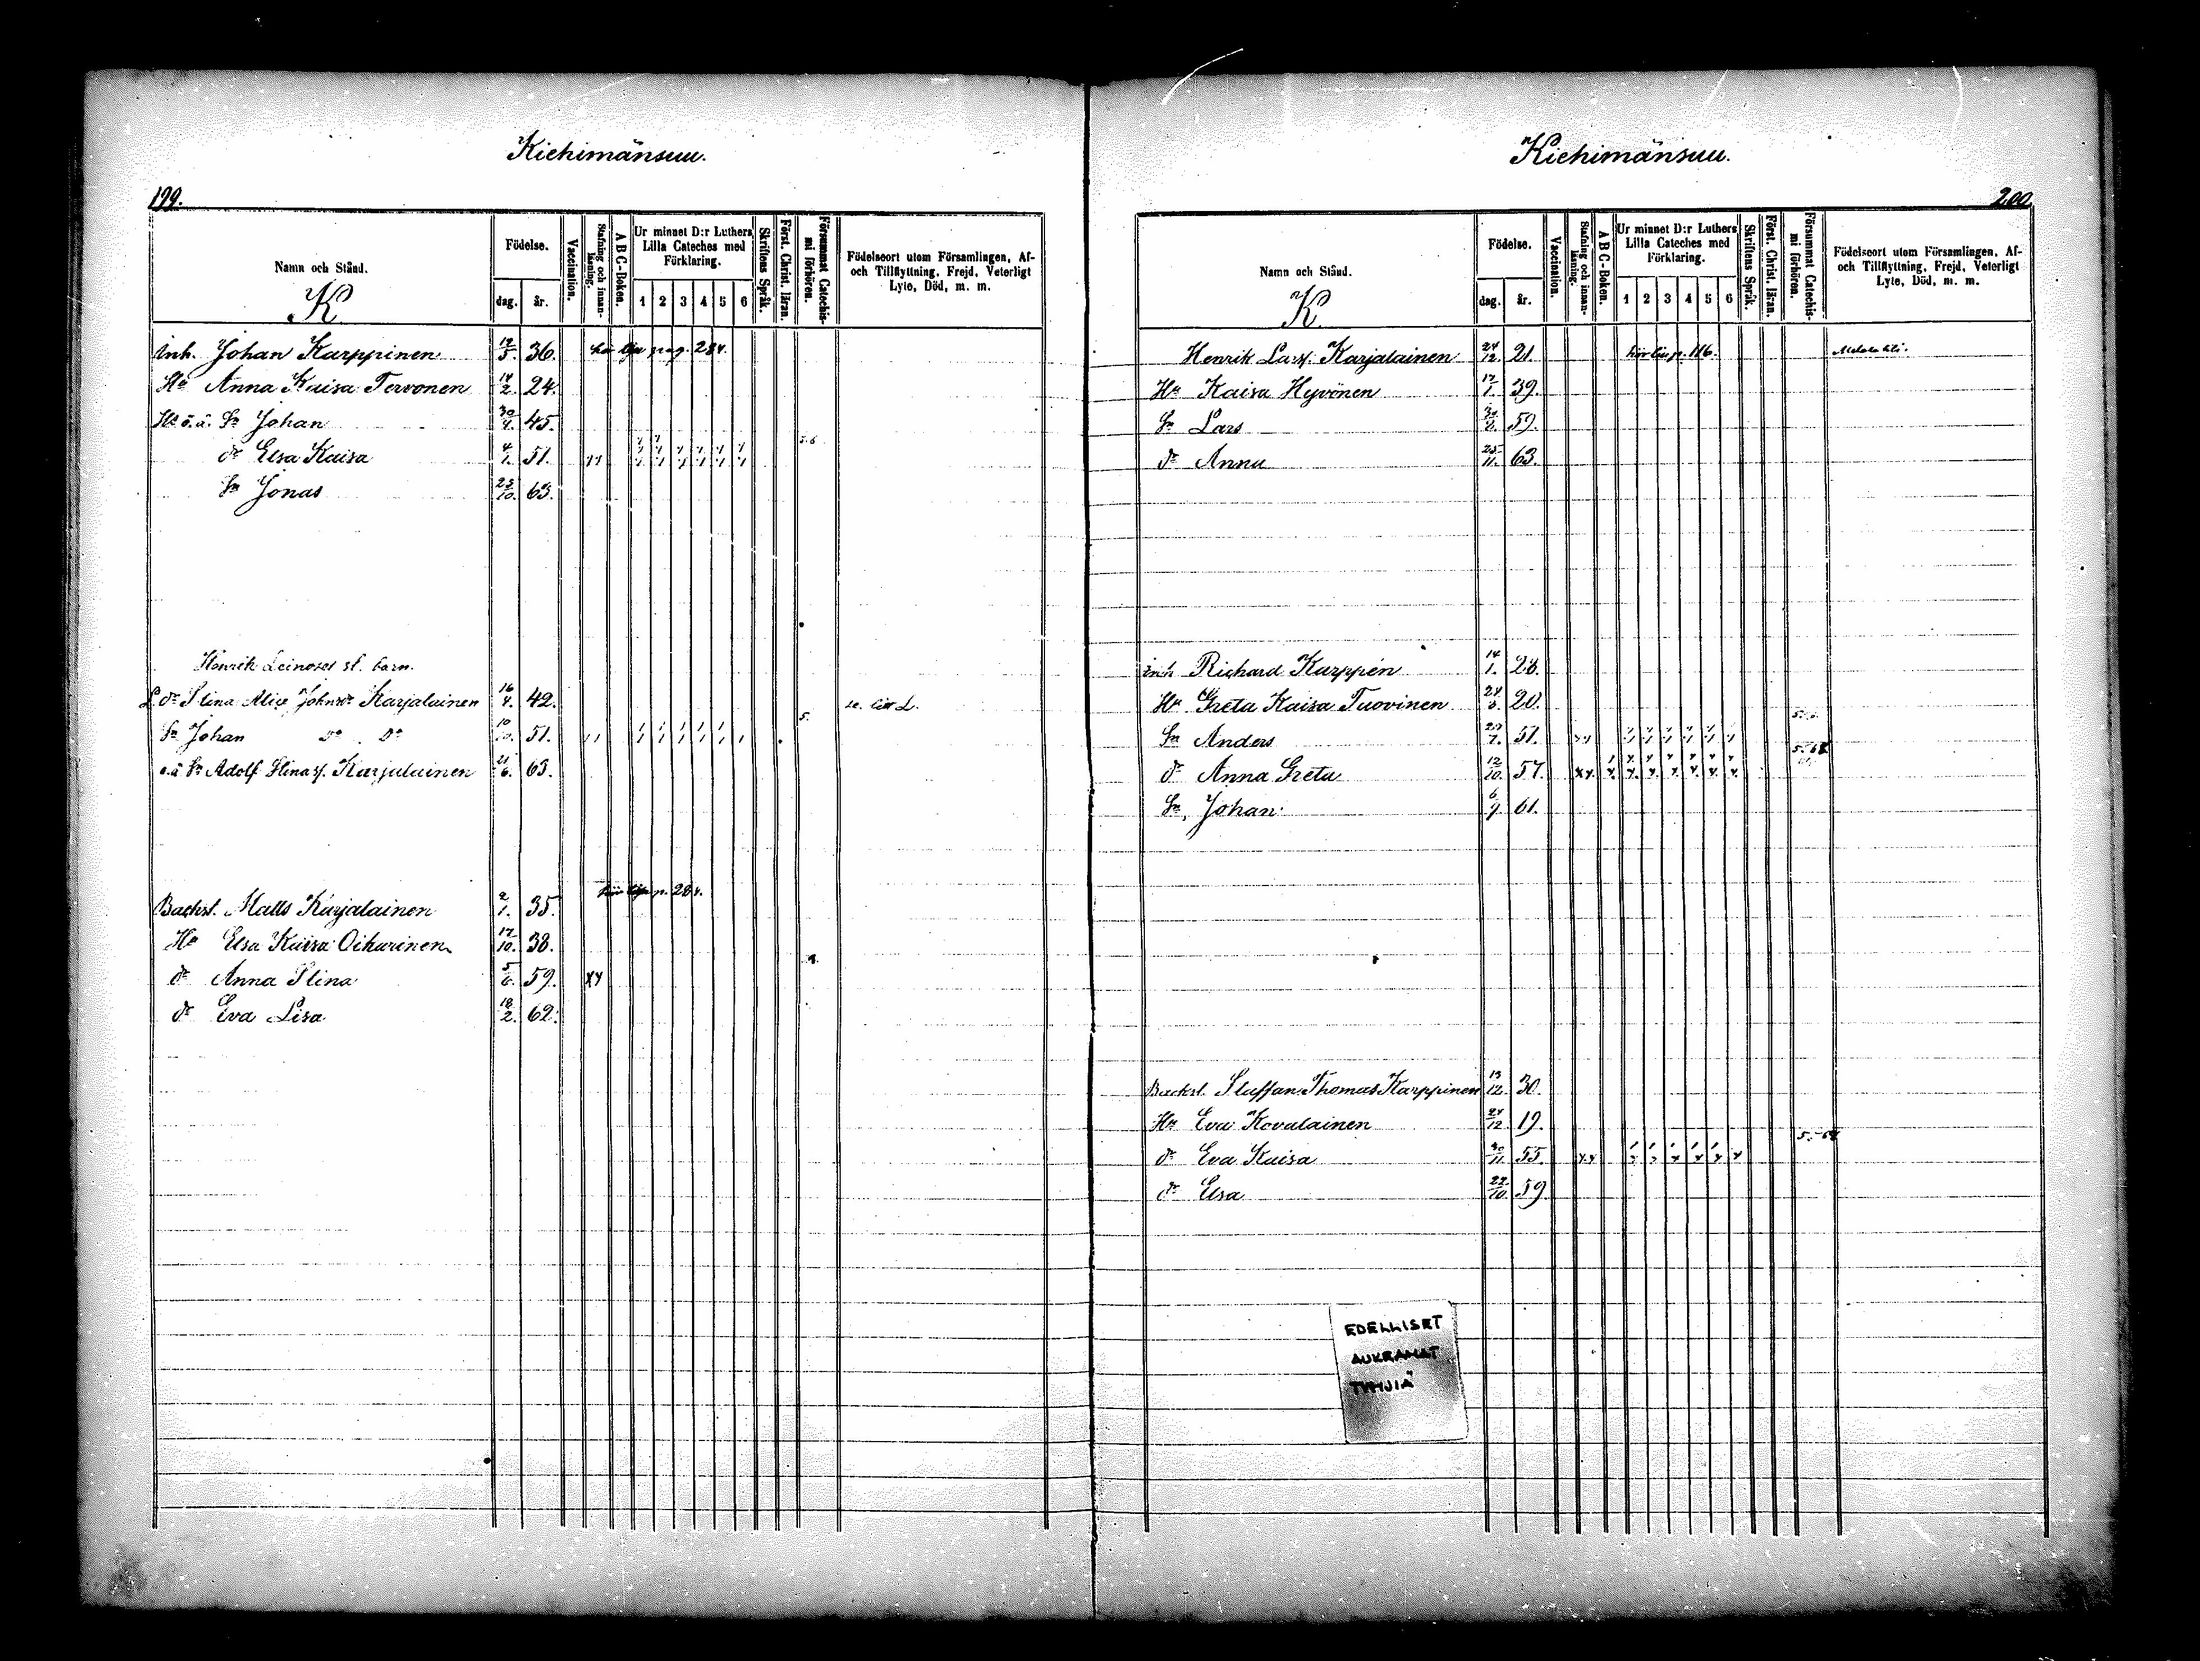 Kiehimänsuu.
199.
Namn och Stånd.
K.
Födelse.
dag.
år.
Vaccination.
Stafning och innan-läsning.
A B C-Boken.
Ur minnet D:r Luthers
Lilla Cateches med
Förklaring.
1 2 3 4 5 6
Skriftens Språk.
Först. Christ. läran.
Försummat Catechis-mi förhören.
Födelseort utom Församlingen, Af-
och Tillflyttning, Frejd, Veterligt
Lyte, Död, m. m.
Inh. Johan Karppinen 36. pag. 284.
Hu Anna Kaisa Tervonen 14/2. 24.
Hs o.ä. Sn Johan 45.
dr Elsa Kaisa 51.
Sn Jonas 23/10. 63.
Henrik Leinoses st. barn.
L. dr Stina Alice Johnsdr Karjalainen 16/4. 42.
Sn Johan Do Do 51.
o.ä Sn Adolf Stinas f. Karjalainen 21/6. 63.
p. 284.
Backst. Matts Karjalainen 2/1. 35.
Hu Elsa Kaisa Oikarinen 17/10. 38.
dr Anna Stina 5/6. 59.
dr Eva Lisa 18/2. 62.
Kiehimänsuu.
200.
Namn och Stånd.
K.
Födelse.
dag.
år.
Vaccination.
Stafning och innan-läsning.
A B C-Boken.
Ur minnet D:r Luthers
Lilla Cateches med
Förklaring.
1 2 3 4 5 6
Skriftens Språk.
Först. Christ. läran.
Försummat Catechis-mi förhören.
Födelseort utom Församlingen, Af-
och Tillflyttning, Frejd, Veterligt
Lyte, Död, m. m.
Henrik Larss. Karjalainen 24/12. 21. p. 116.
Hu Kaisa Hyvönen 39.
Sn Lars 59.
dr Anna 25/11. 63.
Inh Richard Karppén 14/1. 28.
Hu Greta Kaisa Tuovinen 20.
Sn Anders 51.
dr Anna Greta 12/10. 57.
Sn Johan 6/9. 61.
Backst. Staffan Thomas Karppinen 13/12. 30.
Hu Eva Kovalainen 24/12. 19.
dr Eva Kaisa 30/11. 55.
dr Elsa 22/10. 59
EDELLISET
AUKEAMAT
TYHJIÄ